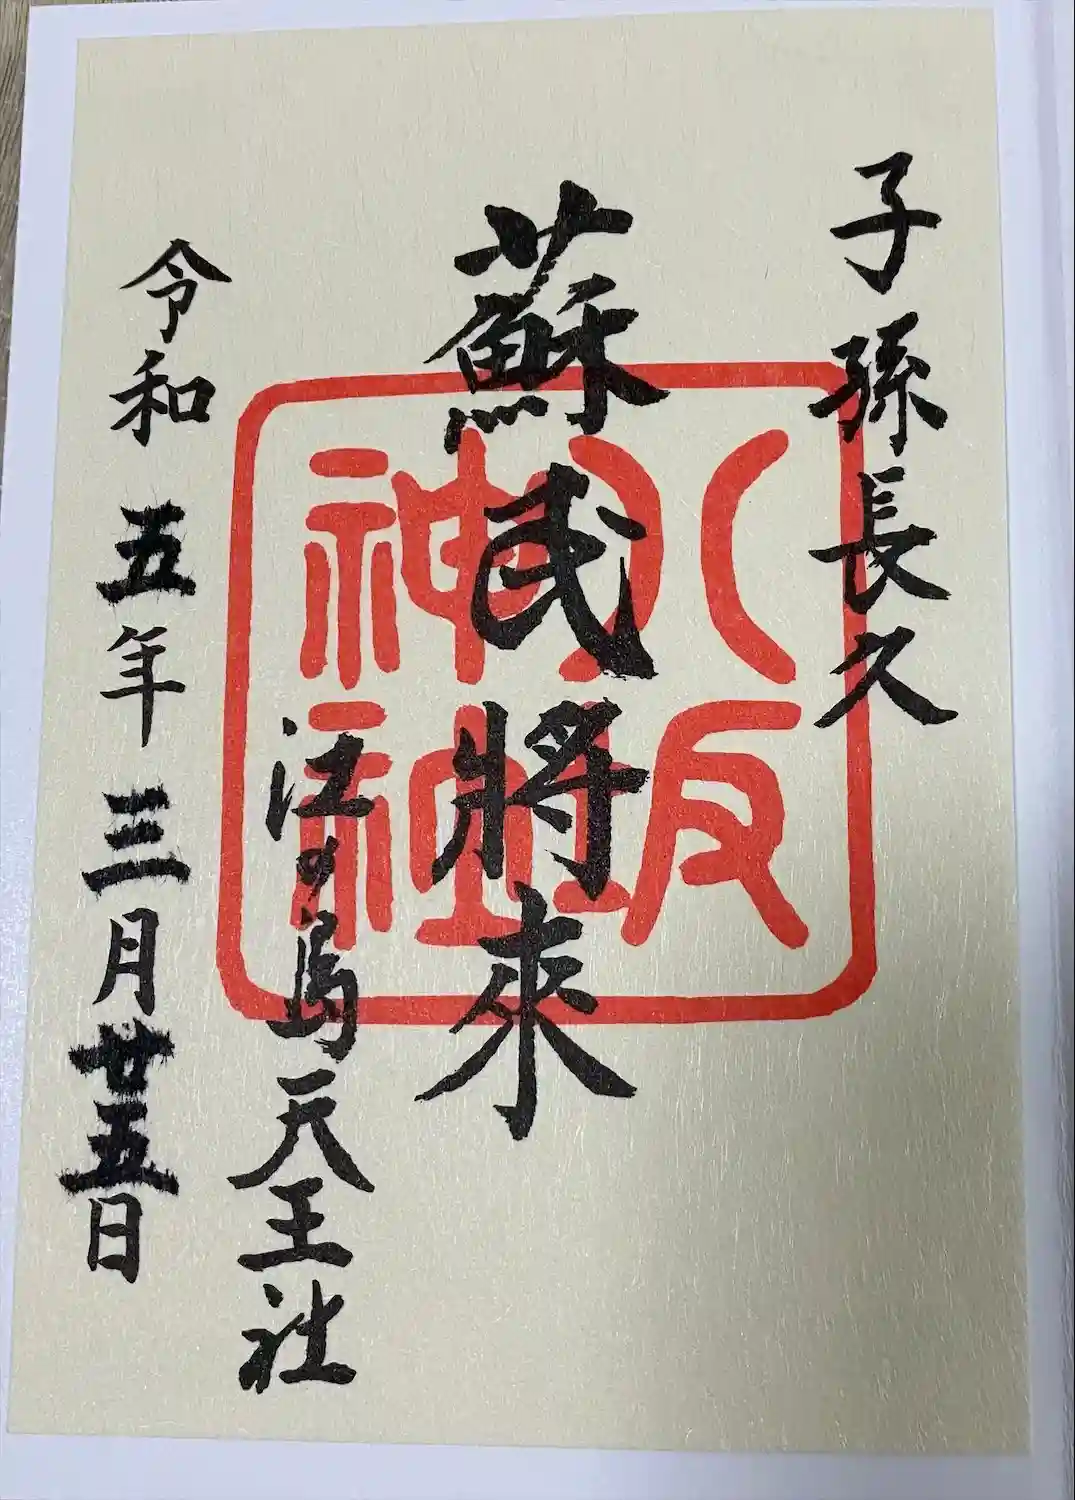 子孫長久
蘇民將來
八坂
神社
江の島天王社
令和五年三月廿五日